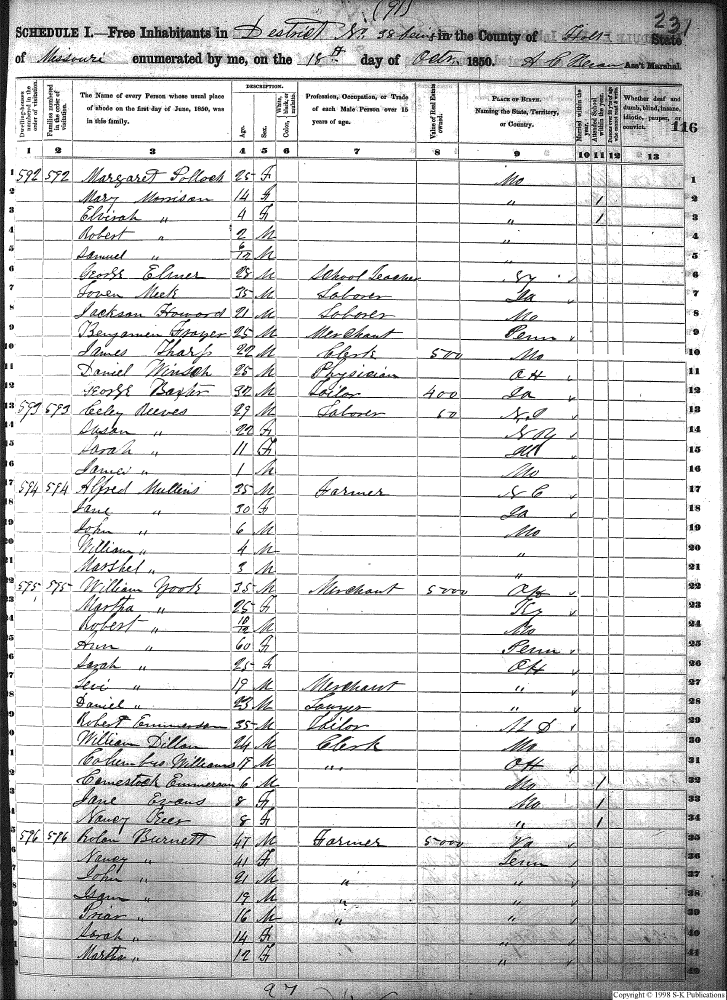 (191)
231
SCHEDULE I.—Free Inhabitants in District No 38 being in the County of Holt State
of Missouri enumerated by me, on the 18th day of Octr 1850. Ass't Marshal.
116
Dwelling-houses numbered in the order of visitation.
Families numbered in the order of visitation.
The Name of every Person whose usual place of abode on the first day of June, 1850, was in this family.
DESCRIPTION.
Age.
Sex.
Color, White, black, or mulatto.
Profession, Occupation, or Trade of each Male Person over 15 years of age.
Value of Real Estate owned.
PLACE OF BIRTH. Naming the State, Territory, or Country.
Married within the year.
Attended School within the year.
Whether deaf and dumb, blind, insane, idiotic, pauper, or convict.
1 2 3 4 5 6 7 8 9 10 11 12 13
1 592 592 Margaret Pollock 25 F Mo 1
2 Mary Morrison 14 F " / 2
3 Elvirah " 4 F " / 3
4 Robert " 2 M " 4
5 Samuel " 6/12 M " 5
6 George Elmer 28 M School Teacher N Y 6
7 Loven Meek 35 M Laborer Ia 7
8 Jackson Howard 21 M Laborer Mo 8
9 Benjamin Frazer 25 M Merchant Penn 9
10 James Tharp 22 M Clerk 500 Mo 10
11 Daniel 25 M Physician OH 11
12 George Baxter 32 M Tailor 400 Ia 12
13 593 593 Celey Reeves 29 M Laborer 50 13
14 Susan " 22 F N Y 14
15 Sarah " 11 F Ill 15
16 James " 1 M Mo 16
17 594 594 Alfred Mullins 35 M Farmer N C 17
18 Jane " 30 F Ia 18
19 John " 6 M Mo 19
20 William " 4 M " 20
21 Marshel " 3 M " 21
22 595 595 William Zook 35 M Merchant 5000 22
23 Martha " 25 F Ky 23
24 Robert " 10/12 M Mo 24
25 Ann " 60 F Penn 25
26 Sarah " 25 F OH 26
27 Levi " 19 M Merchant " 27
28 Daniel " 23 M Lawyer " 28
29 Robert Emmerson 35 M Tailor M D 29
30 William Dillon 24 M Clerk Mo 30
31 Columbus Williams 17 M " " OH 31
32 Comestock Emmerson 6 M Mo / 32
33 Jane Evans 8 F Mo / 33
34 Nancy 8 F " / 34
35 596 596 Rolan Burnett 47 M Farmer 5000 Va 35
36 Nancy " 41 F Tenn 36
37 John " 21 M " " 37
38 Isam " 19 M " " 38
39 Priar " 16 M " " 39
40 Sarah " 14 F " 40
41 Martha " 12 F " 41
42
97
Copyright © 1998 S-K Publications